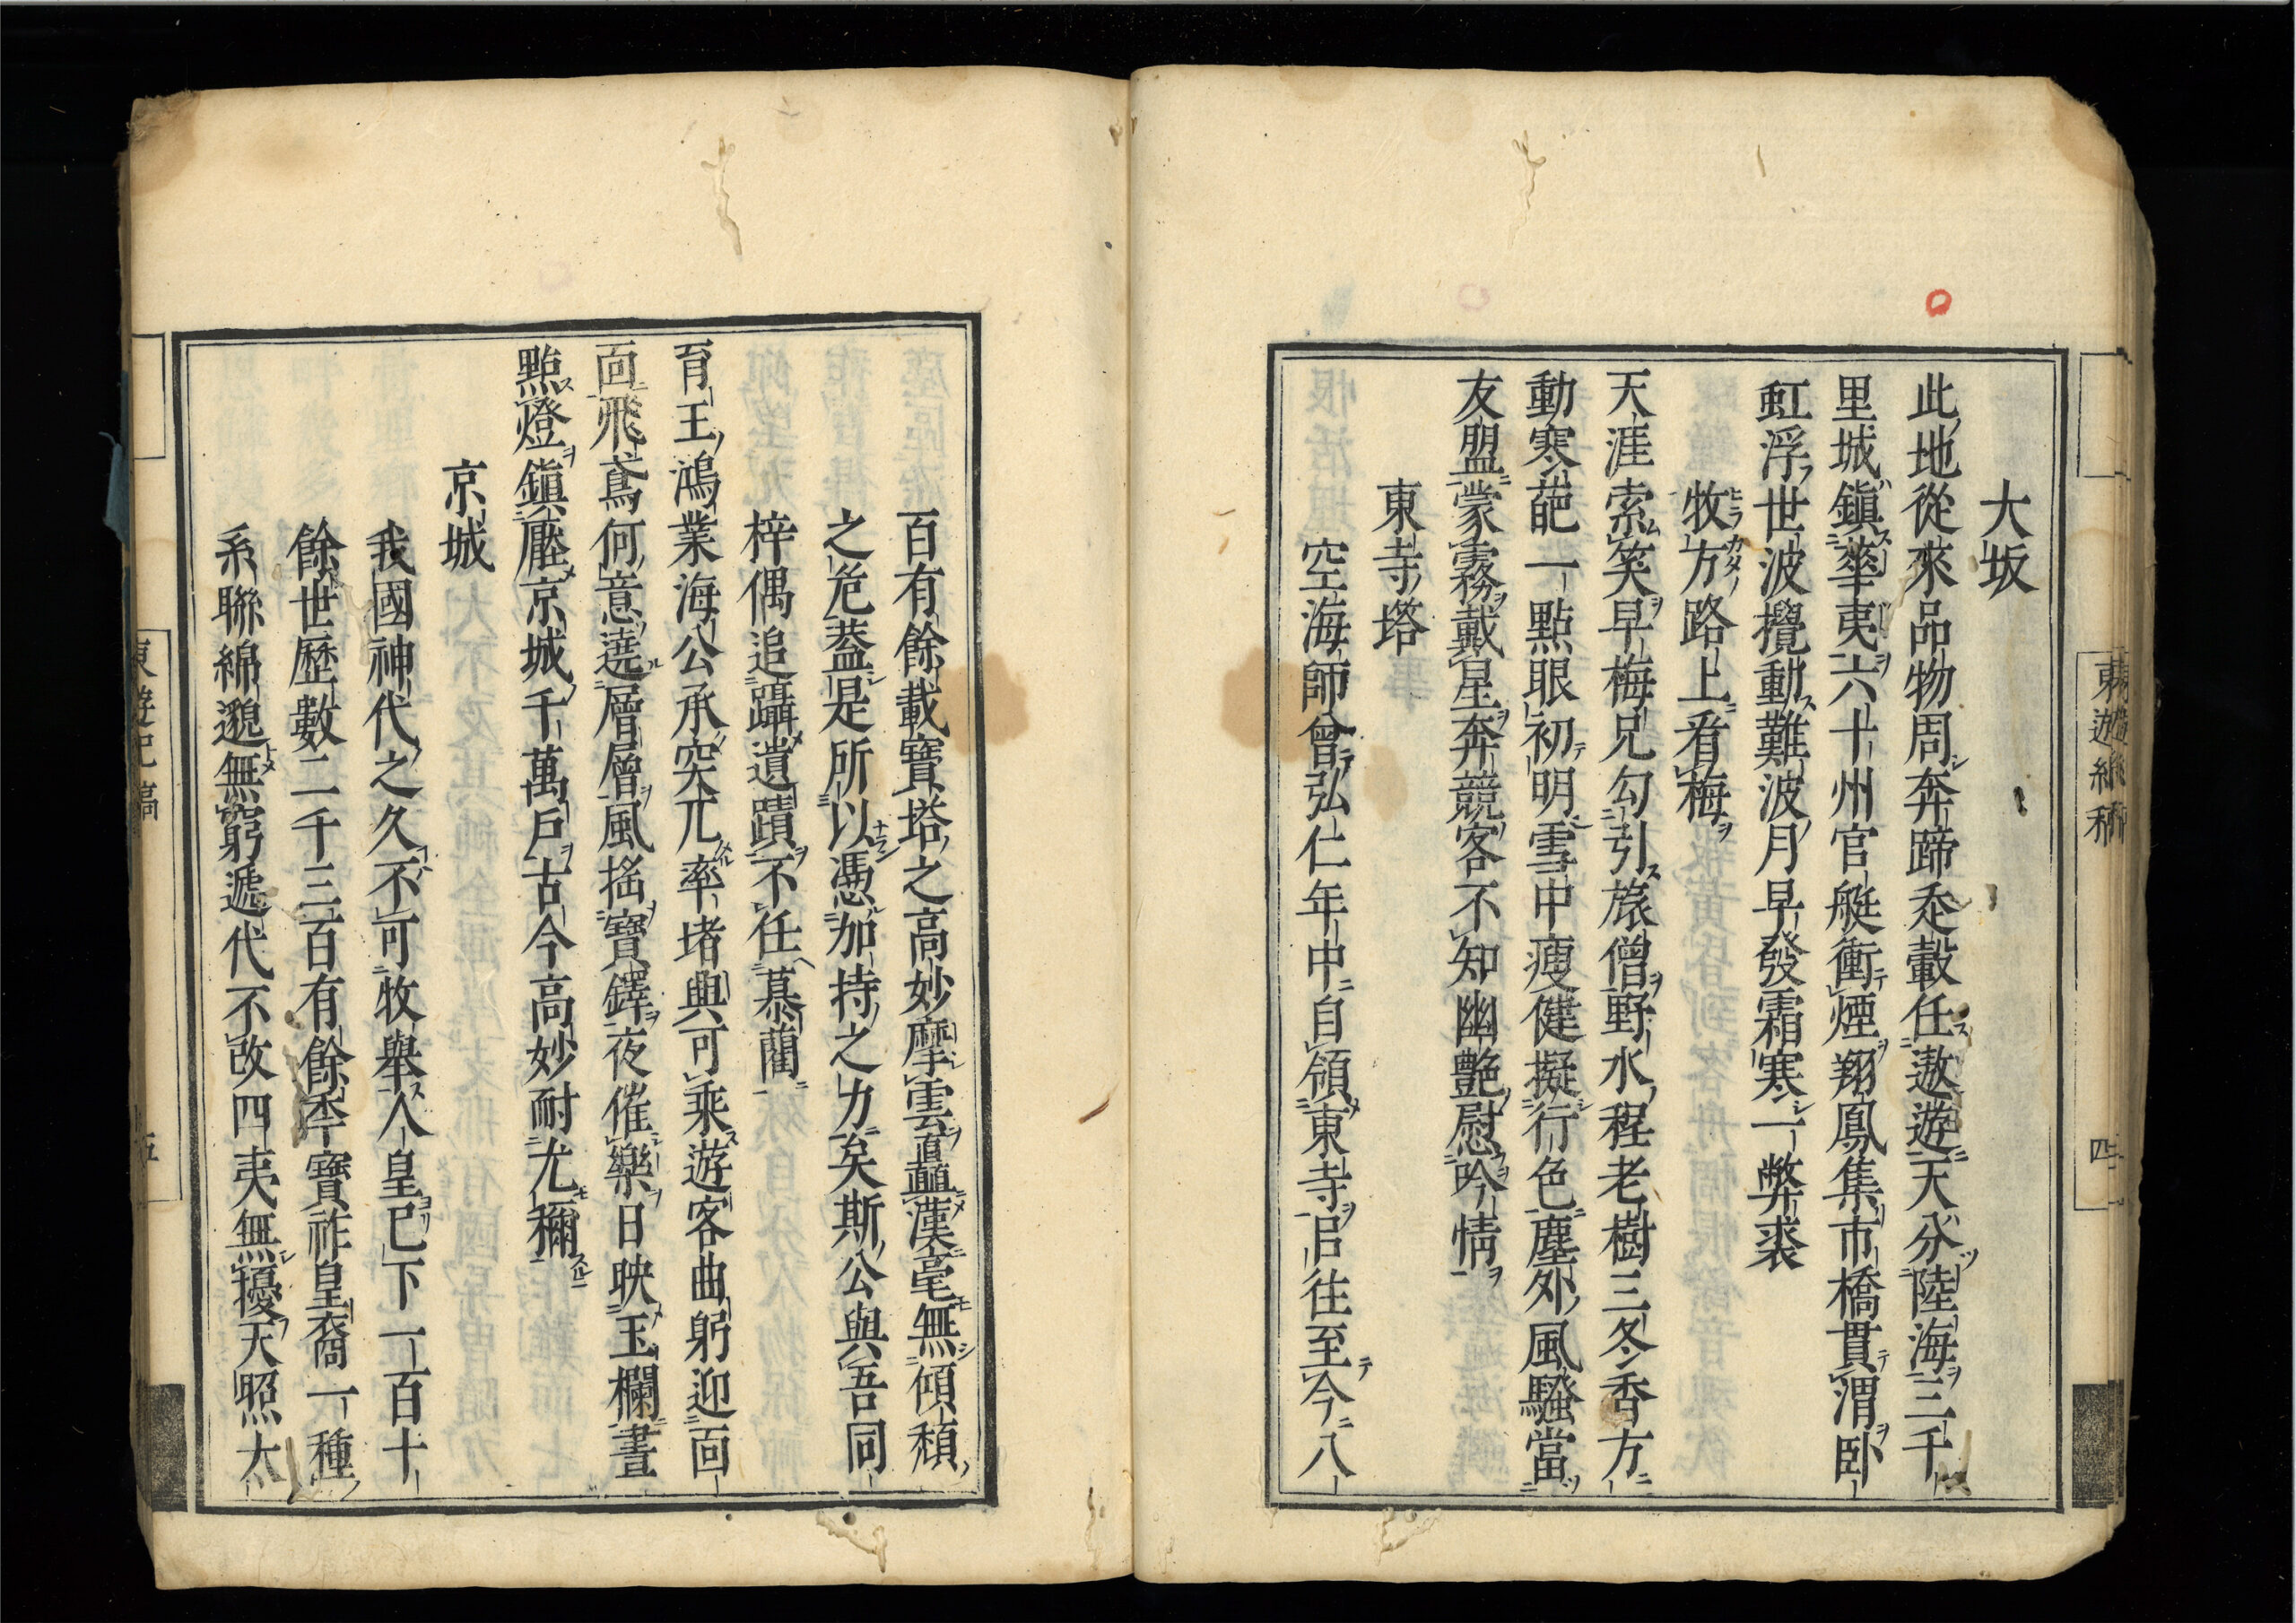 大坂
此地從來品物周奔蹄忝轂任遨遊天分陸海三千
里城鎮華夷六十州官艇衝煙翔鳳集市橋貫渭臥
虹浮世波攪動難波月早發霜寒一弊裘
牧方路上看梅
天涯索笑早梅兄勾引旅僧野水程老樹三冬香方
動寒葩一點眼初明雪中瘦健擬行色塵外風騷當
友盟蒙霧戴星奔競客不知幽艷慰吟情
東寺塔
空海師曾弘仁年中自領東寺官往至今八
百有餘載寶塔之高妙摩雲矗漢毫無傾頹
之危蓋是所以憑加持之力矣斯公與吾同
梓偶追躡遺蹟不任慕藺
育王鴻業海公承突兀率堵與可乘遊客曲躬迎面
面飛鳶何意遶層層風搖寶鐸夜催樂日映玉欄晝
點燈鎮壓京城千萬戶古今高妙耐尤彌
京城
我國神代之久不可枚舉人皇已下一百十
餘世歷數二千三百有餘季寶祚皇裔一種
系聯綿邈無窮遞代不改四夷無擾天照太
東遊紀稿
四
東遊紀稿
五